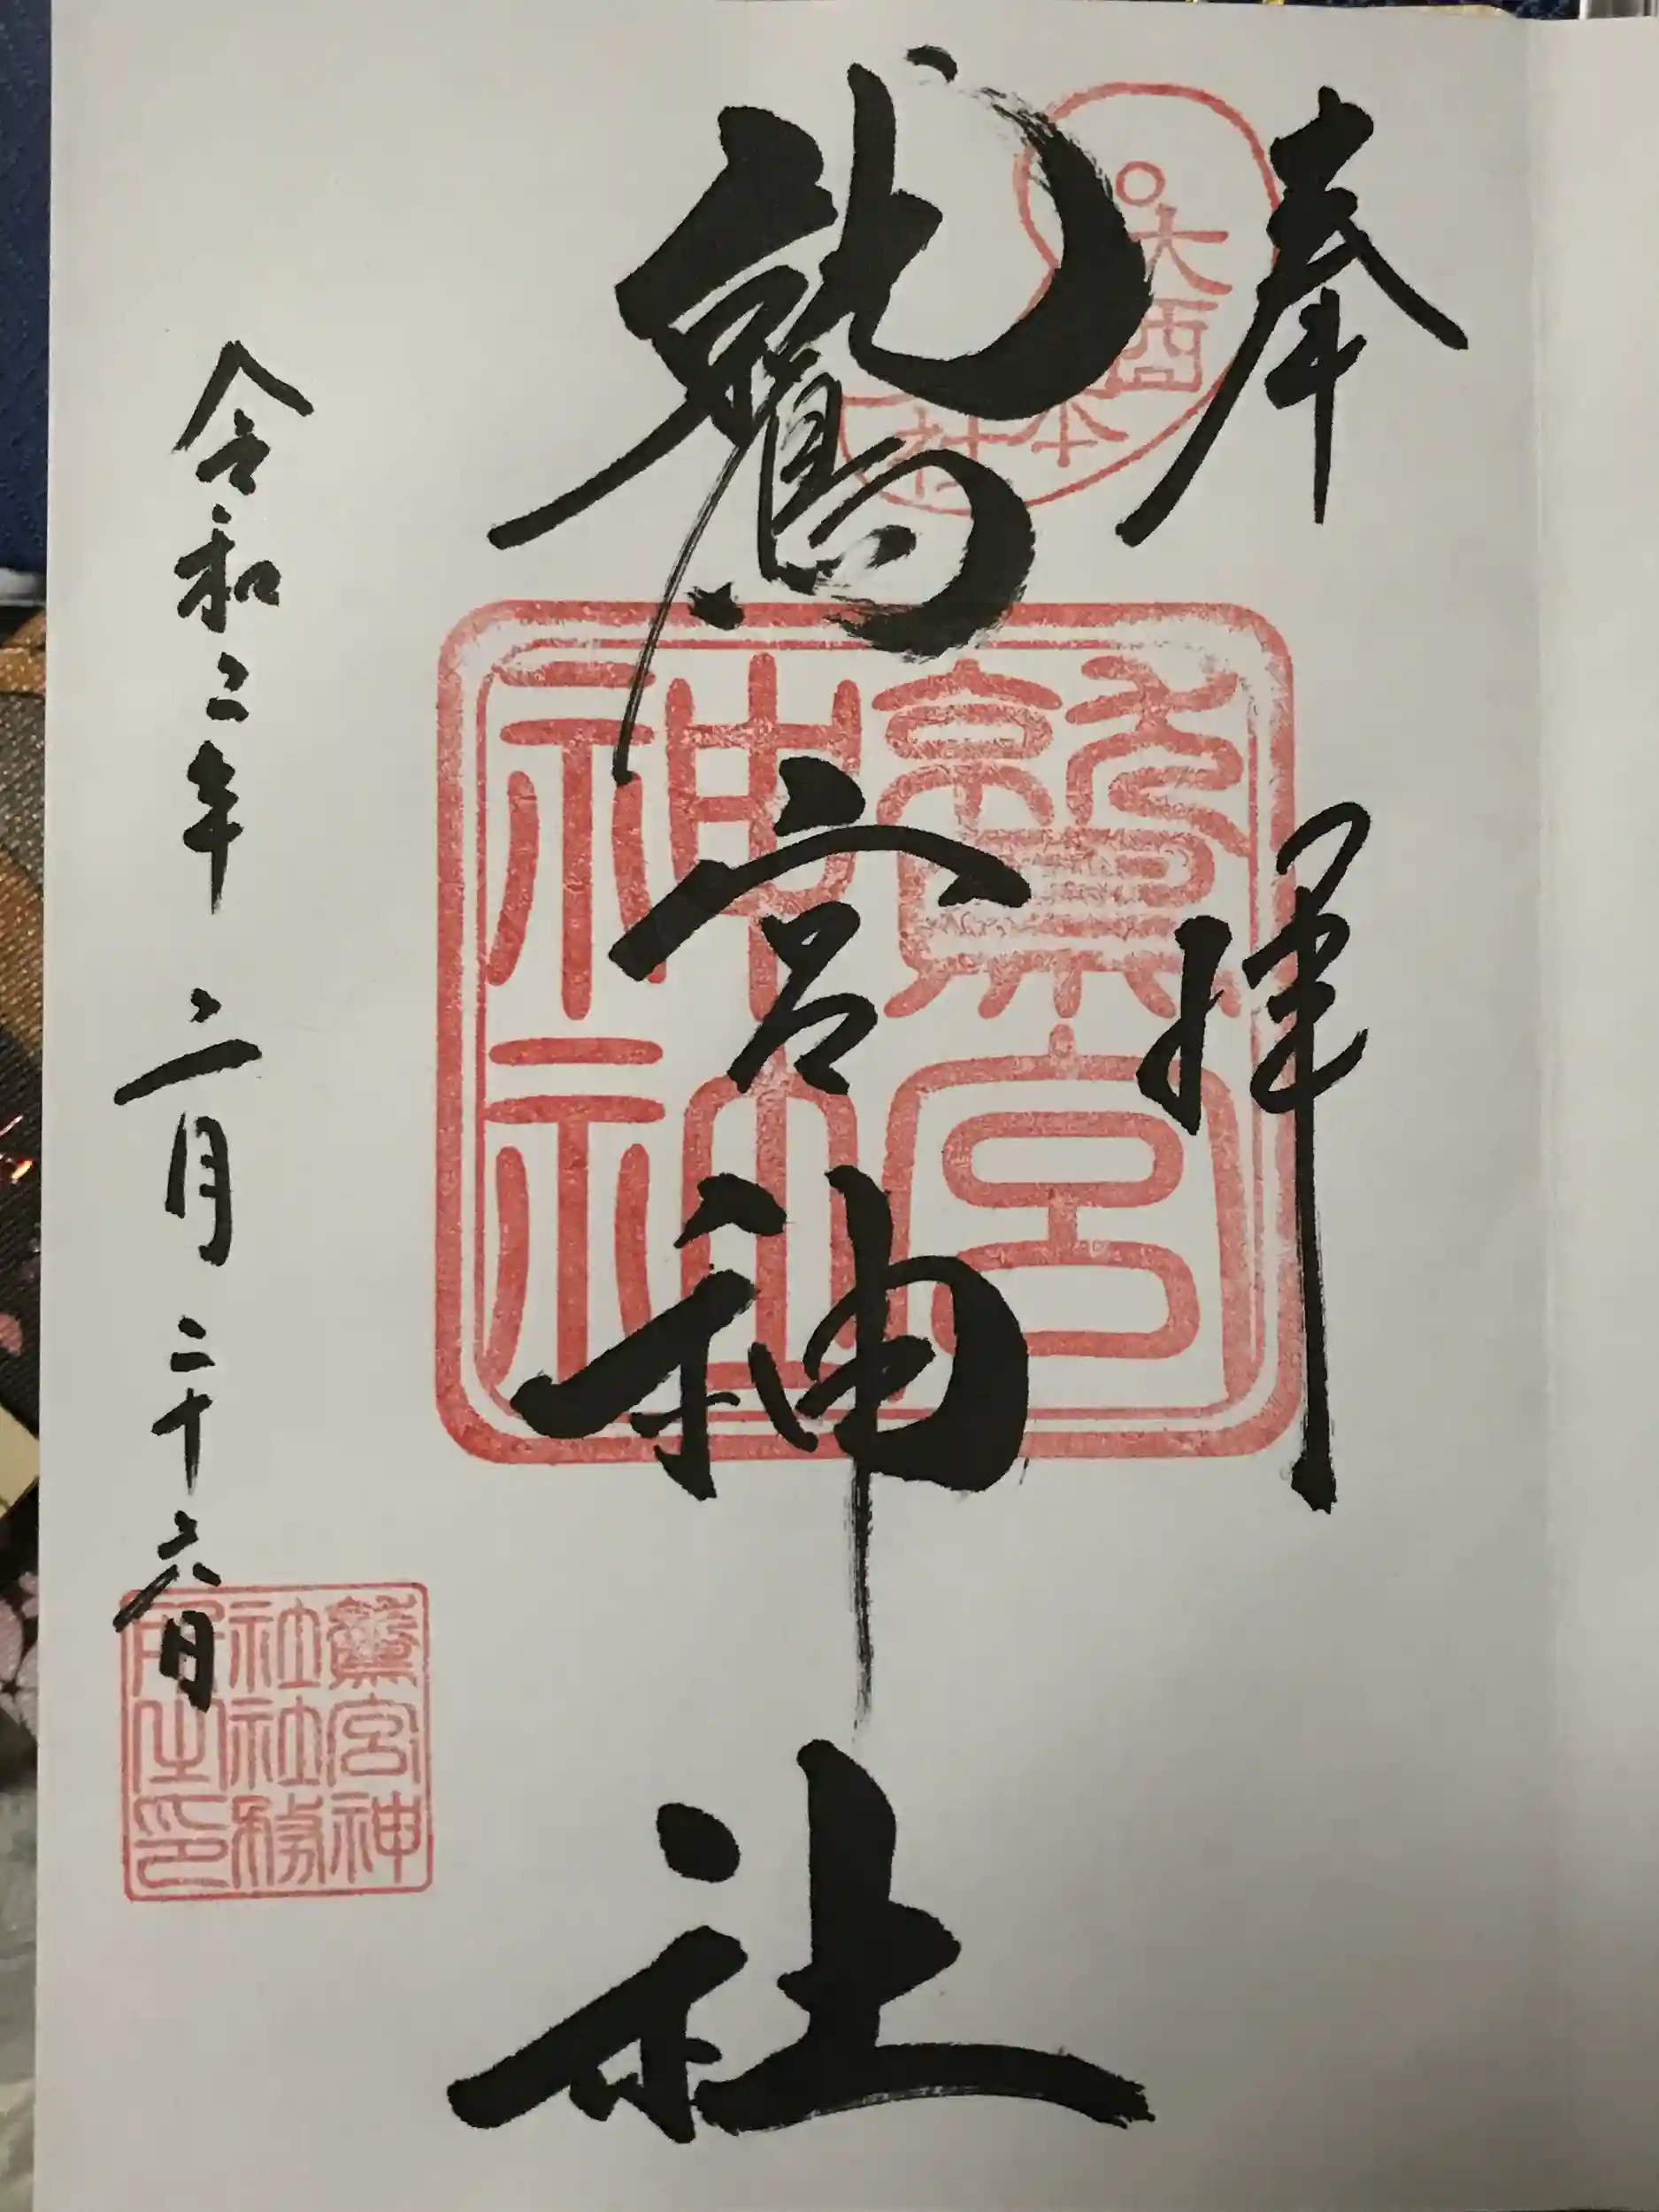 奉拝
大酉本社
鷲宮神社
鷲宮
神社
令和二年二月二十六日
鷲宮神
社社務
所之印